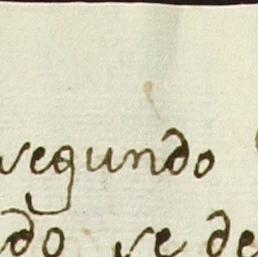 segundo
do se de